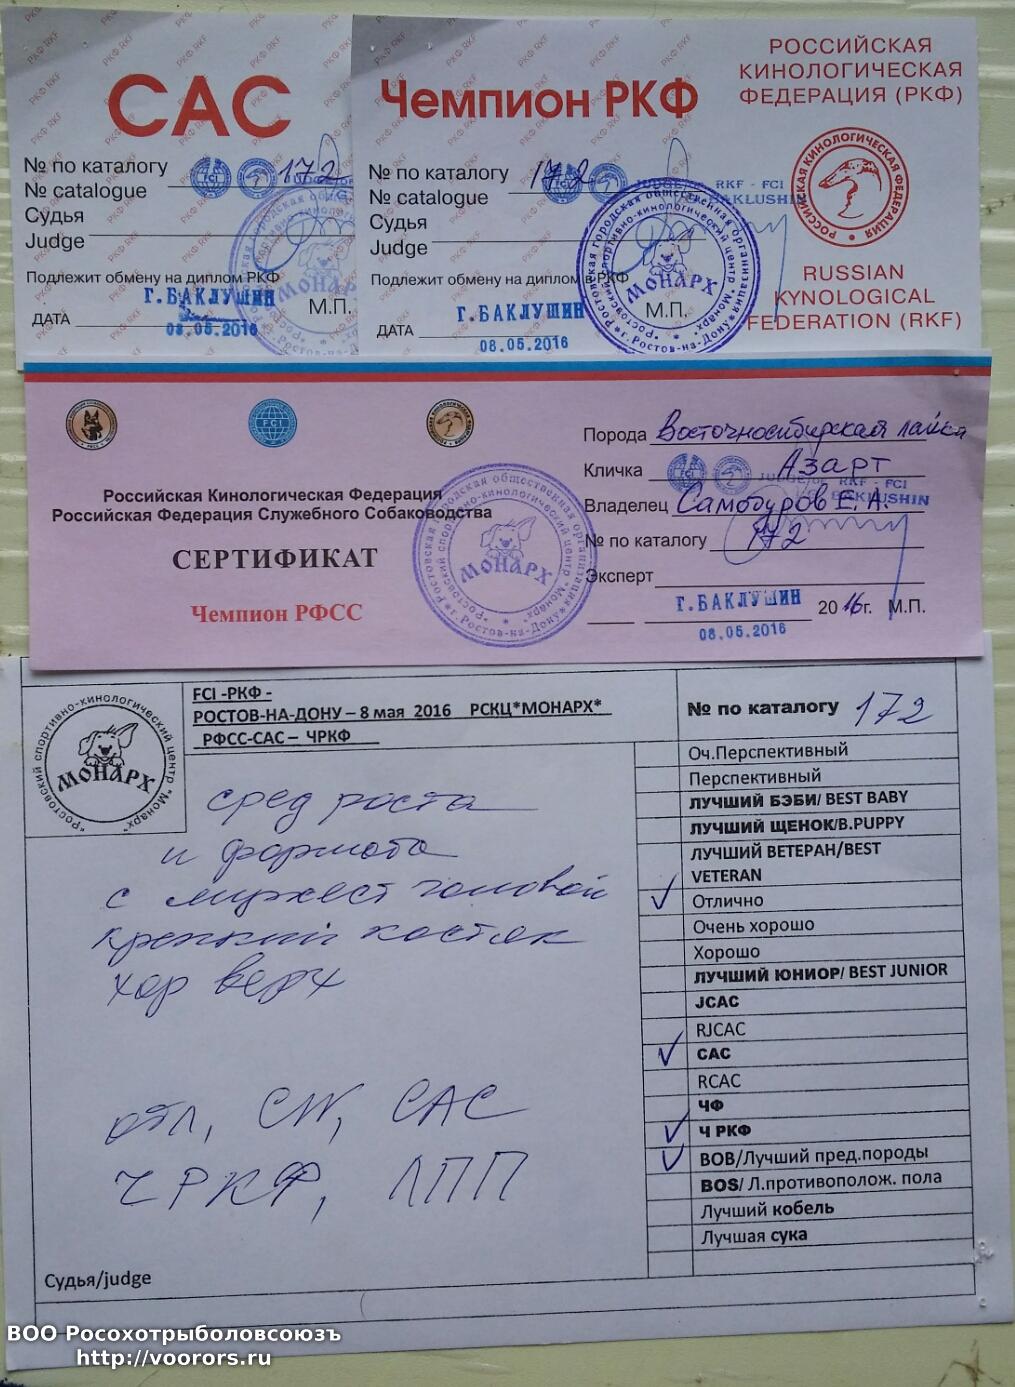 САС
№ по каталогу 172
№ catalogue
Судья
Judge
Подлежит обмену на диплом РКФ
Г.БАКЛУШИН
ДАТА 08.05.2016 М.П.
Чемпион РКФ
№ по каталогу 172
№ catalogue
Судья
Judge
Подлежит обмену на диплом РКФ
Г.БАКЛУШИН
ДАТА 08.05.2016 М.П.
МОНАРХ
JUDGE RKF - FCI
BAKLUSHIN
РОССИЙСКАЯ
КИНОЛОГИЧЕСКАЯ
ФЕДЕРАЦИЯ (РКФ)
РОССИЙСКАЯ КИНОЛОГИЧЕСКАЯ ФЕДЕРАЦИЯ
RUSSIAN
KYNOLOGICAL
FEDERATION (RKF)
FCI
Российская Кинологическая Федерация
Российская Федерация Служебного Собаководства
СЕРТИФИКАТ
Чемпион РФСС
МОНАРХ
Порода Восточносибирская лайка
Кличка Азарт
JUDGE RKF - FCI
BAKLUSHIN
Владелец Самбуров Е.А.
№ по каталогу 172
Эксперт
Г.БАКЛУШИН 2016г. М.П.
08.05.2016
Ростовский спортивно-кинологический центр "Монарх"
МОНАРХ
FCI -РКФ -
РОСТОВ-НА-ДОНУ – 8 мая 2016 РСКЦ*МОНАРХ*
РФСС-САС – ЧРКФ
№ по каталогу 172
сред роста
и формата
с мужест головой
крепкий костяк
хор верх
отл, CW, САС
ЧРКФ, ЛПП
Оч.Перспективный
Перспективный
ЛУЧШИЙ БЭБИ/ BEST BABY
ЛУЧШИЙ ЩЕНОК/B.PUPPY
ЛУЧШИЙ ВЕТЕРАН/BEST
VETERAN
✓ Отлично
Очень хорошо
Хорошо
ЛУЧШИЙ ЮНИОР/ BEST JUNIOR
JCAC
RJCAC
✓ CAC
RCAC
ЧФ
✓ Ч РКФ
✓ BOB/Лучший пред.породы
BOS/ Л.противополож. пола
Лучший кобель
Лучшая сука
Судья/judge
ВОО Росохотрыболовсоюзъ
http://voorors.ru